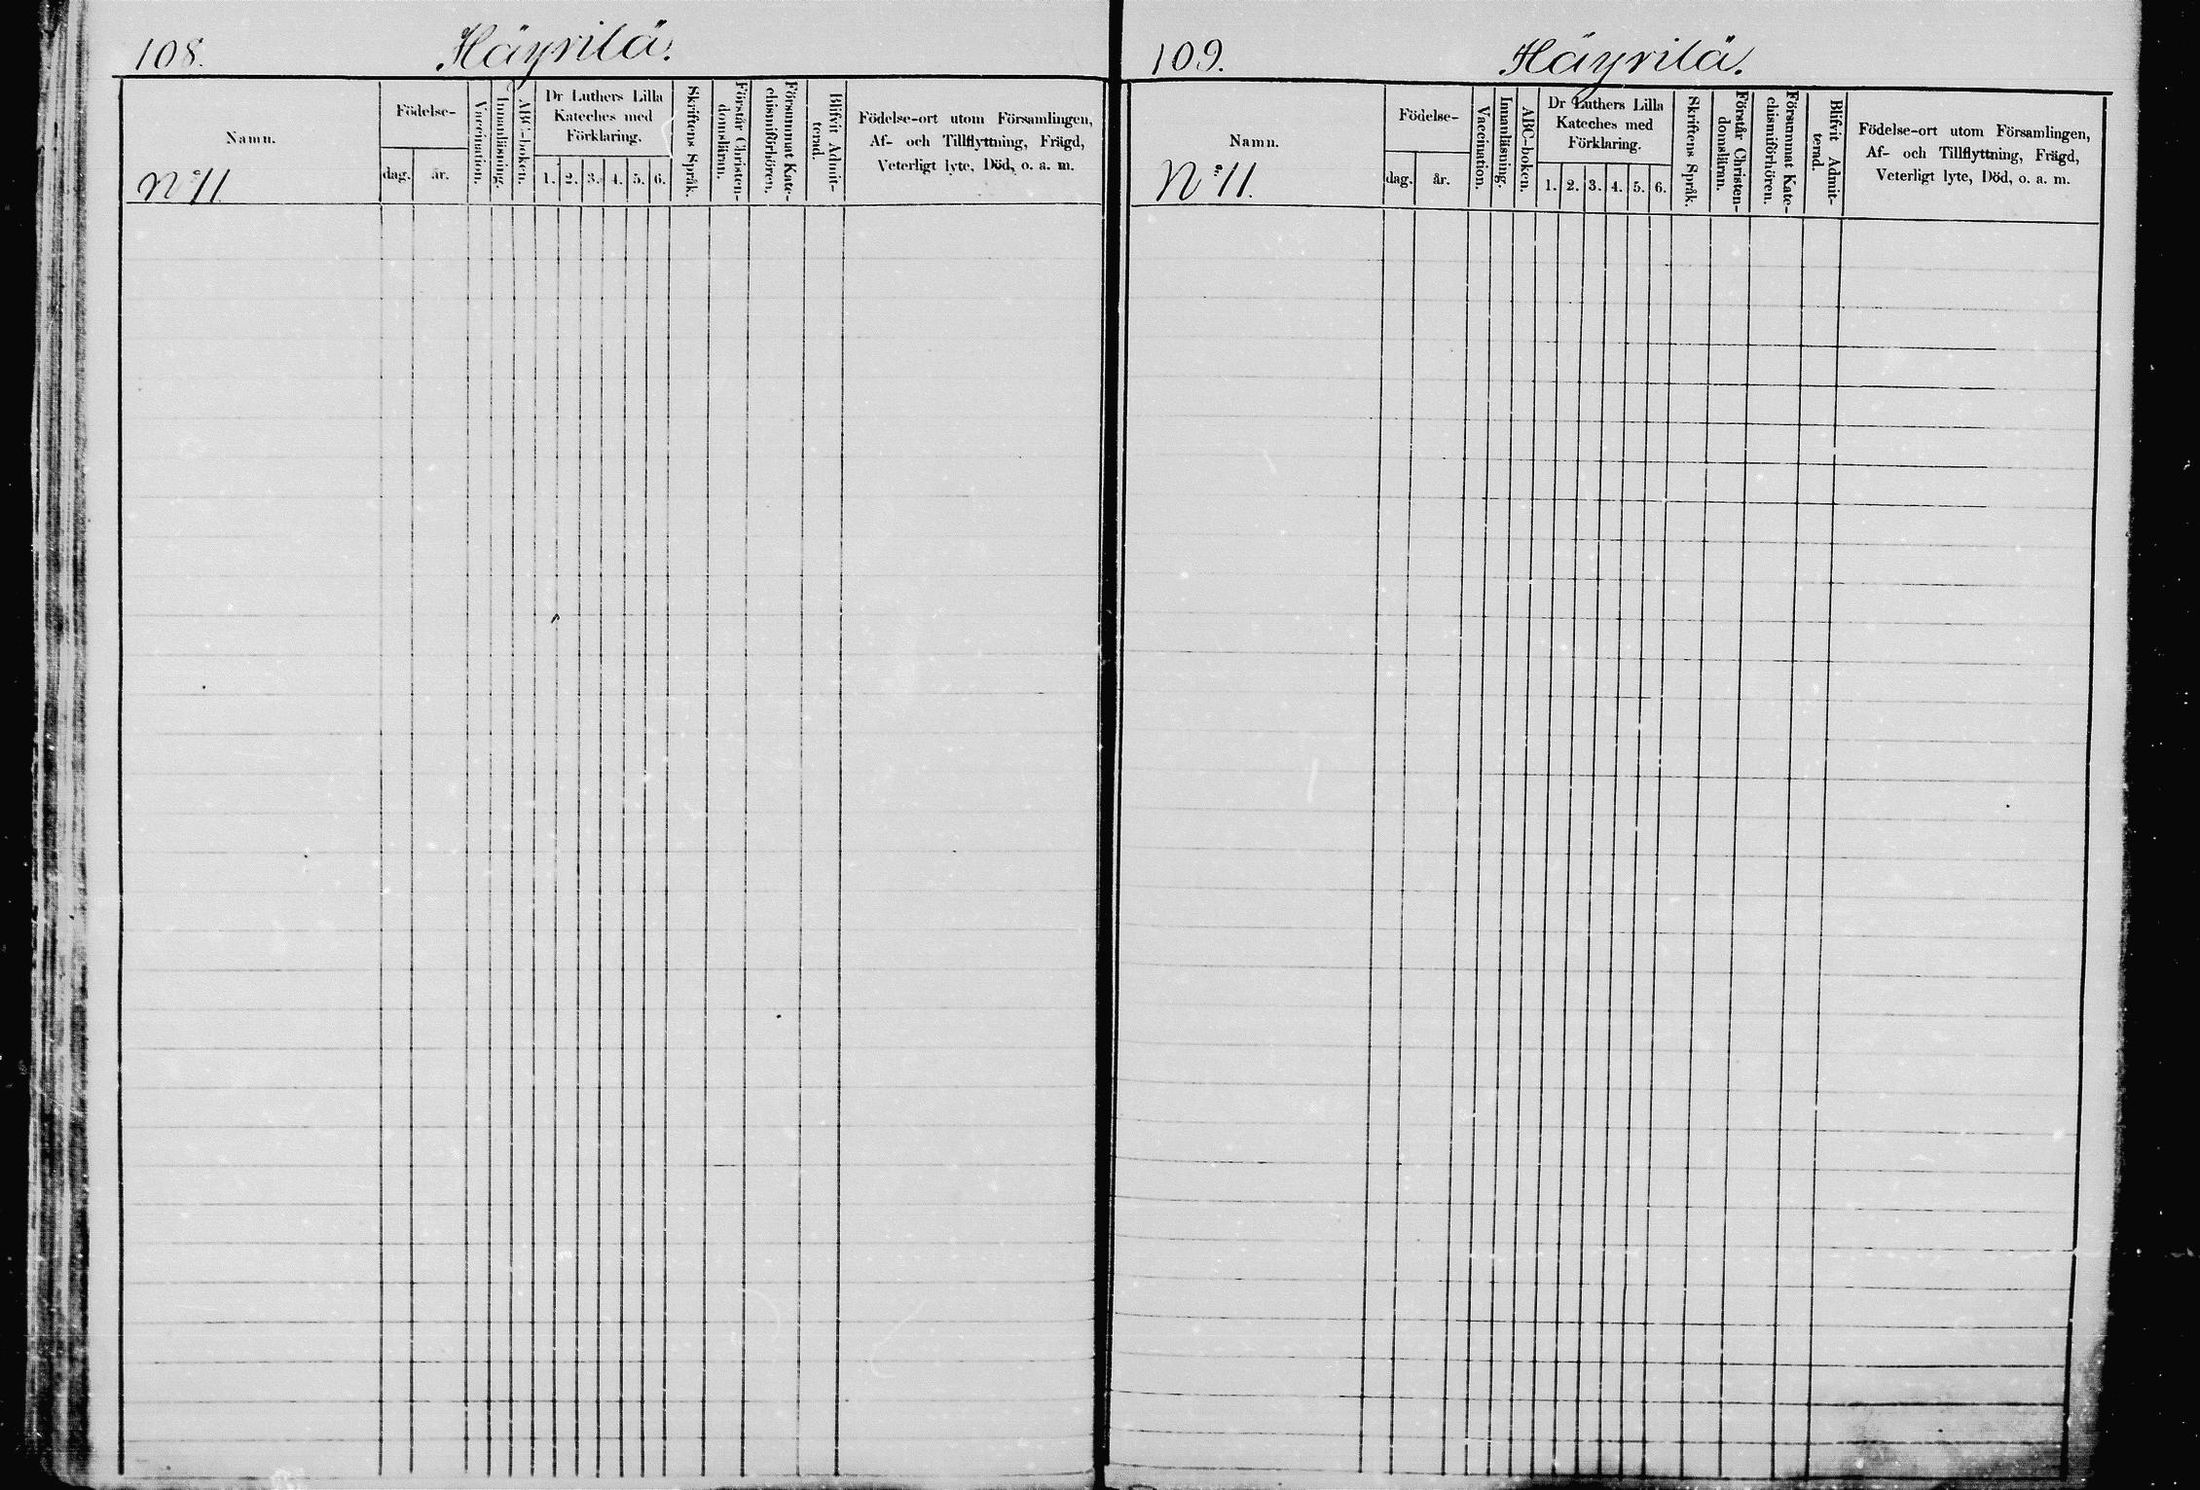 108.
Häyrilä.
Namn.
No 11
Födelse-
dag.
år.
Vaccination.
Innanläsning.
ABC-boken.
Dr Luthers Lilla
Kateches med
Förklaring.
1. 2. 3. 4. 5. 6.
Skriftens Språk.
Förstår Christen-
domsläran.
Försummat Kate-
chismiförhören.
Blifvit Admit-
terad.
Födelse-ort utom Församlingen,
Af- och Tillflyttning, Frägd,
Veterligt lyte, Död, o. a. m.
109.
Häyrilä.
Namn.
No 11.
Födelse-
dag.
år.
Vaccination.
Innanläsning.
ABC-boken.
Dr Luthers Lilla
Kateches med
Förklaring.
1. 2. 3. 4. 5. 6.
Skriftens Språk.
Förstår Christen-
domsläran.
Försummat Kate-
chismiförhören.
Blifvit Admit-
terad.
Födelse-ort utom Församlingen,
Af- och Tillflyttning, Frägd,
Veterligt lyte, Död, o. a. m.